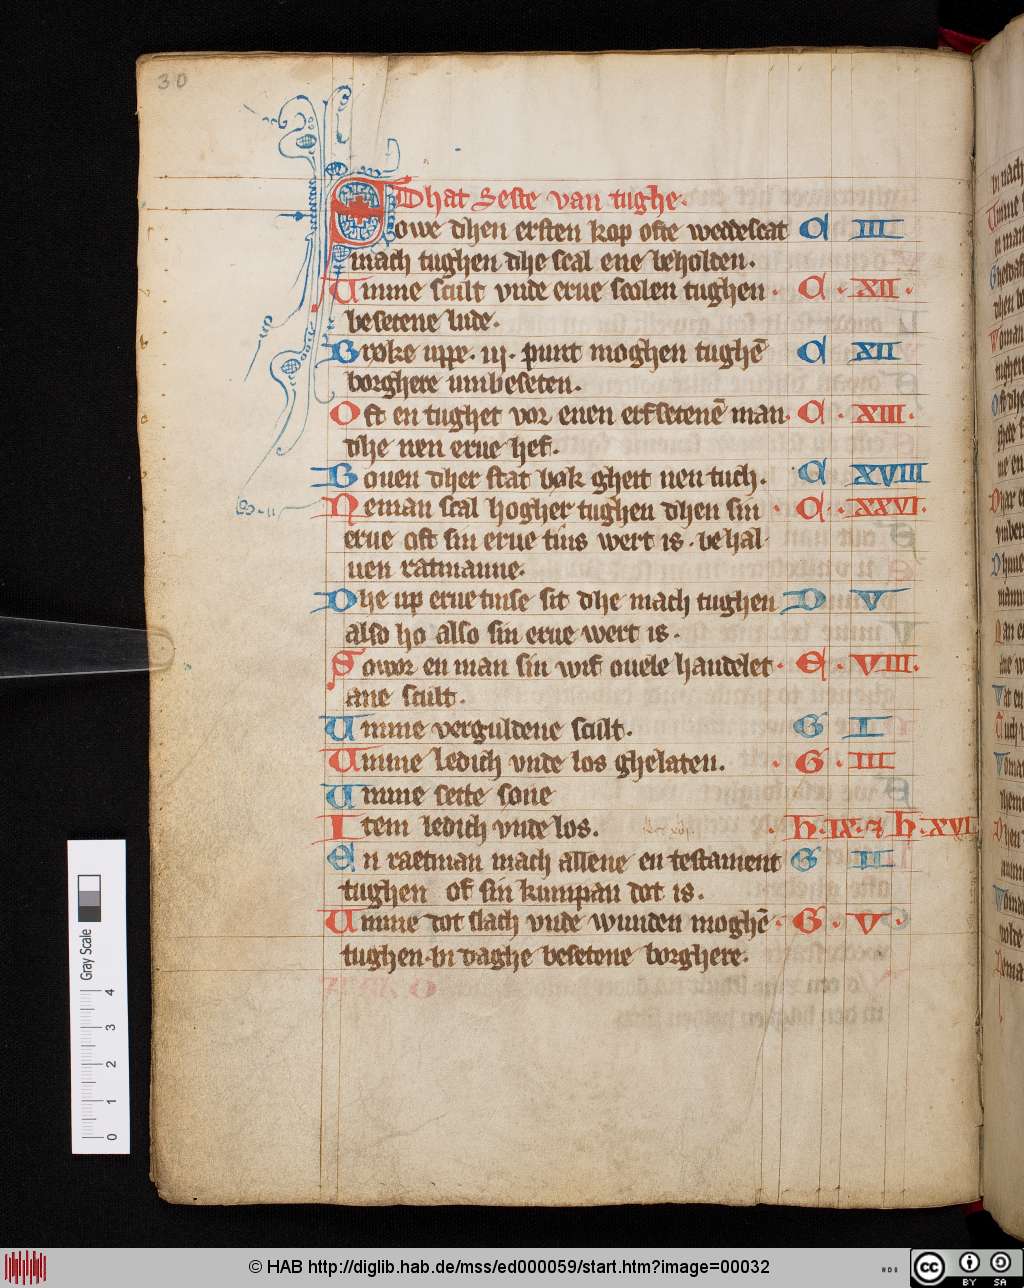 30
Dhat Seste van tughe.
Sowe dhen ersten kop ofte weddescat C III
mach tughen dhe scal ene beholden.
Umme scult vnde erue scolen tughen · C · XII ·
besetene lude.
Broke uppe. iij. punt moghen tughē C XII
borghere umbeseten.
Oft en tughet vor enen erfsetenē man · C · XIII ·
dhe nen erue hef.
Bouen dher stat bok gheit nen tuch. C XVIII
Neman scal hogher tughen dhen sin · C · XXVI ·
erue oft sin erue tuis wert is . behal
uen ratmanne.
Dhe up erue tuise sit dhe mach tughen D V
also ho also sin erue wert is .
Sowor en man sin wif ouele handelet · E · VIII ·
ane scult .
Umme verguldene scult . G I
Umme ledich vnde los ghelaten. · G · III
Umme sette sone
Item ledich vnde los. · h · IX · & h · XVI
En raetman mach allene en testament G II
tughen of sin kumpan dot is .
Umme dot slach vnde wunden moghē · G · V ·
tughen bi daghe besetene borghere.
Gray Scale
0 1 2 3 4
© HAB http://diglib.hab.de/mss/ed000059/start.htm?image=00032
cc BY SA